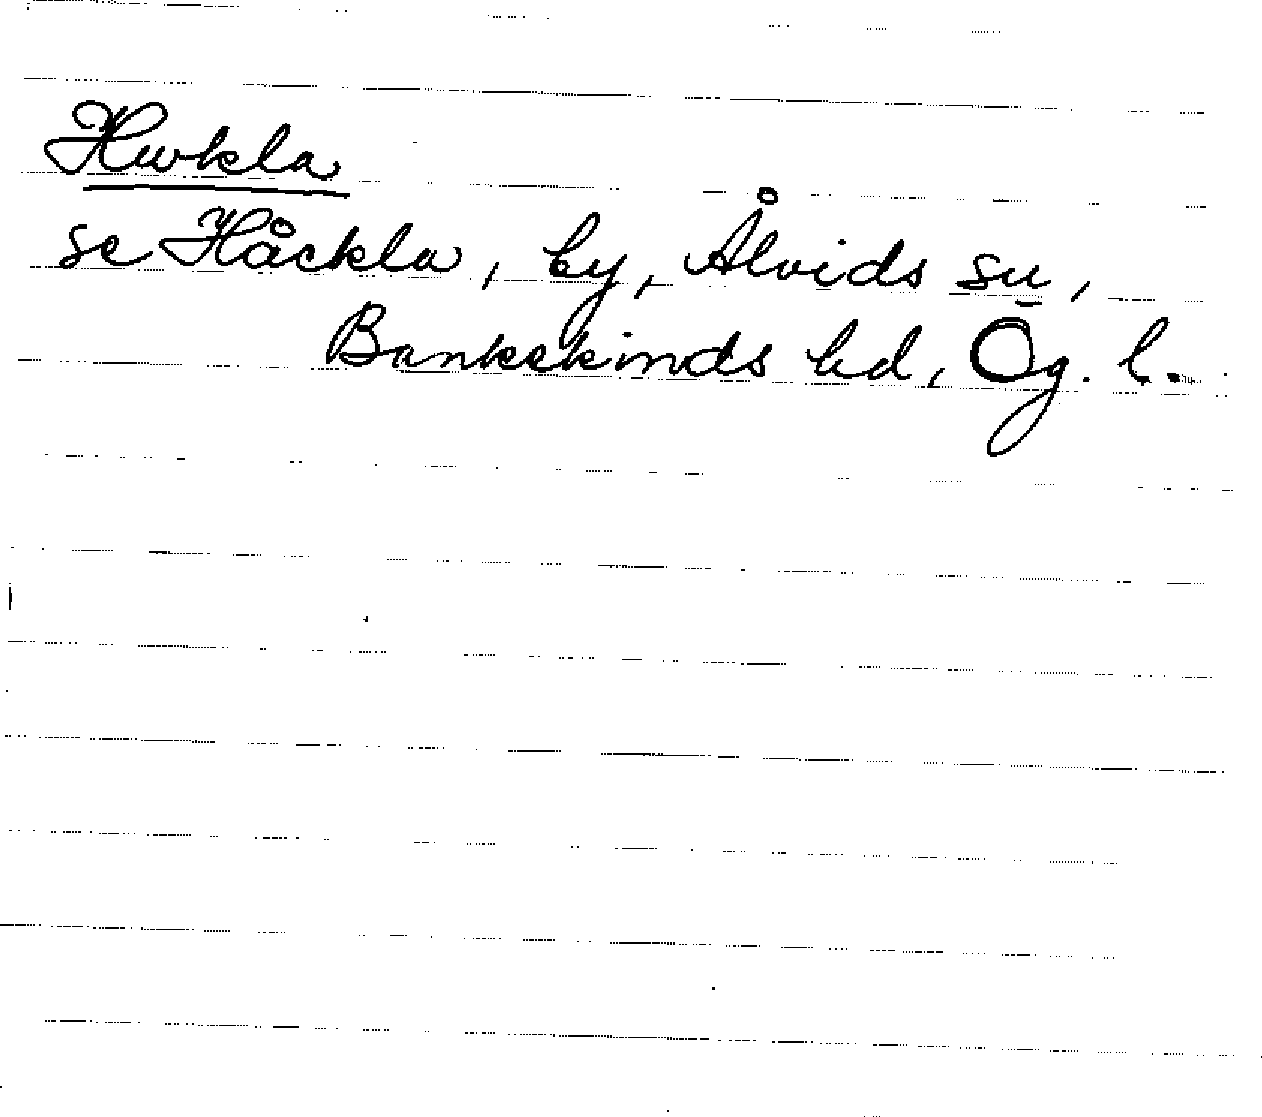 Hwkla
se Håckla, by, Ålvids sn,
Bankekinds hd, Ög. l.